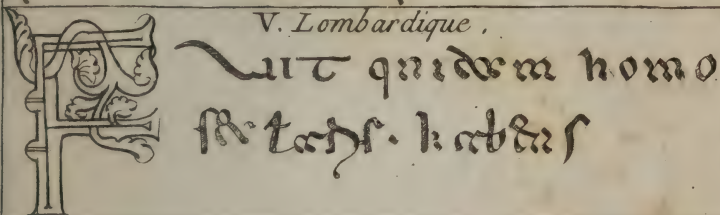 V. Lombardique.
Fuit quidam homo
habens